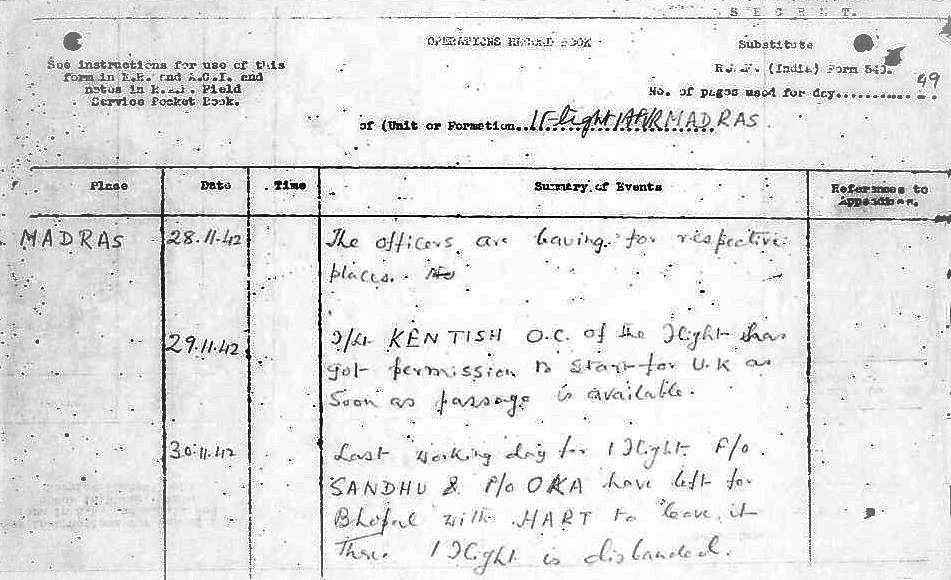 SECRET.
OPERATIONS RECORD BOOK
Substitute
See instructions for use of this
form in K.R. and A.C.I. and
notes in R.A.F. Field
Service Pocket Book.
R.A.F. (India) Form 540.
No. of pages used for day.......... 49
of (Unit or Formation.. 1 Flight MADRAS
Place Date Time Summary of Events References to
Appendices.
MADRAS 28.11.42 The officers are leaving for respective
places.
29.11.42 F/Lt KENTISH O.C. of the Flight has
got permission to start for U.K as
soon as passage is available.
30.11.42 Last working day for 1 Flight. P/o
SANDHU & P/o OKA have left for
Bhopal with HART to leave it
There 1 Flight is disbanded.